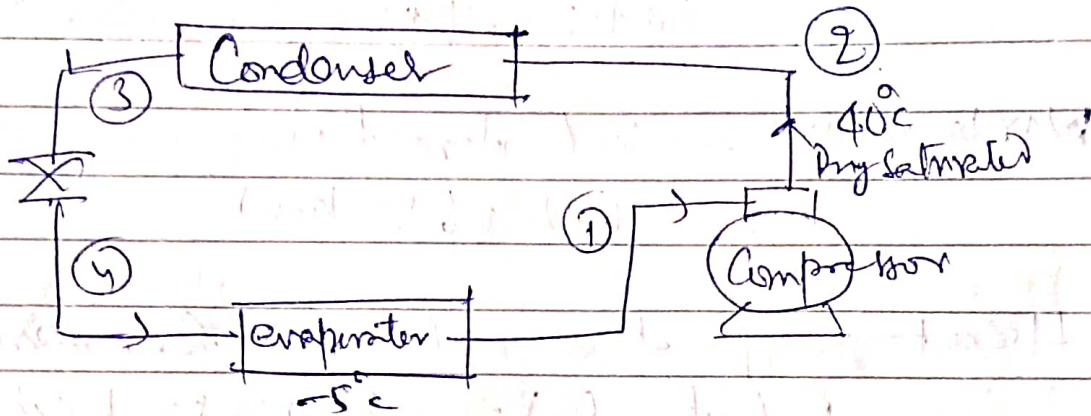 ②
Condenser
③
40°c
Dry Saturated
①
④
Compressor
evaporator
-5°c